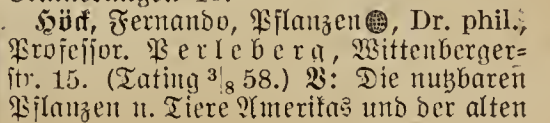 Höck, Fernando, Pflanzen🌐, Dr. phil.,
Professor. Perleberg, Wittenberger=
str. 15. (Tating 3/8 58.) V: Die nutzbaren
Pflanzen u. Tiere Amerikas und der alten